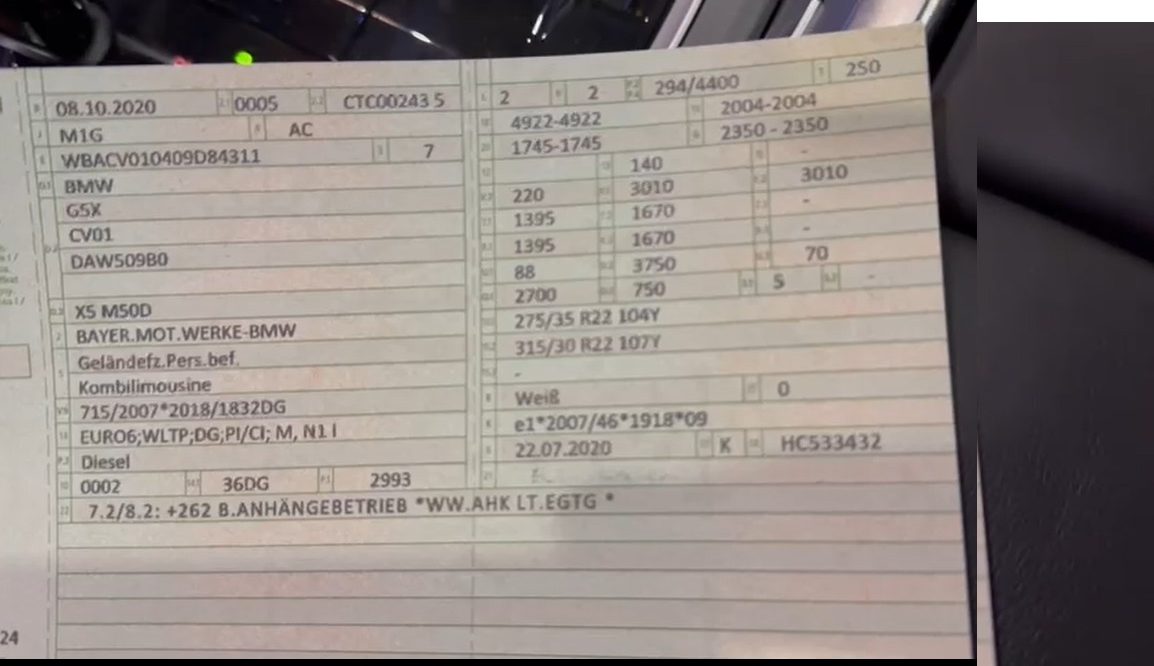 08.10.2020 0005 CTC00243 5
M1G AC
WBACV010409D84311 7
BMW
G5X
CV01
DAW509B0
X5 M50D
BAYER.MOT.WERKE-BMW
Geländefz.Pers.bef.
Kombilimousine
715/2007*2018/1832DG
EURO6;WLTP;DG;PI/CI; M, N1 I
Diesel
0002 36DG 2993
2 2 294/4400 250
4922-4922 2004-2004
1745-1745 2350 - 2350
140 -
220 3010 3010
1395 1670 -
1395 1670 -
88 3750 70
2700 750 5 -
275/35 R22 104Y
315/30 R22 107Y
-
Weiß 0
e1*2007/46*1918*09
22.07.2020 K HC533432
7.2/8.2: +262 B.ANHÄNGEBETRIEB *WW.AHK LT.EGTG *
24